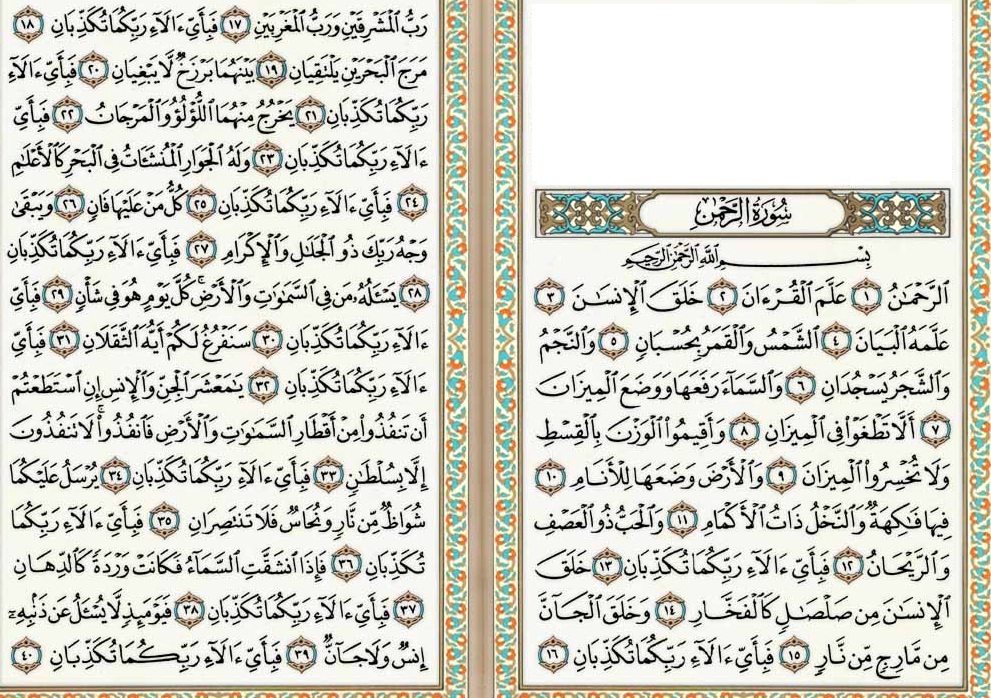 سُورَةُ الرَّحْمَٰنِ
بِسْمِ اللَّهِ الرَّحْمَٰنِ الرَّحِيمِ
الرَّحْمَٰنُ ١ عَلَّمَ الْقُرْءَانَ ٢ خَلَقَ الْإِنسَٰنَ ٣
عَلَّمَهُ الْبَيَانَ ٤ الشَّمْسُ وَالْقَمَرُ بِحُسْبَانٍ ٥ وَالنَّجْمُ
وَالشَّجَرُ يَسْجُدَانِ ٦ وَالسَّمَاءَ رَفَعَهَا وَوَضَعَ الْمِيزَانَ
٧ أَلَّا تَطْغَوْا فِي الْمِيزَانِ ٨ وَأَقِيمُوا الْوَزْنَ بِالْقِسْطِ
وَلَا تُخْسِرُوا الْمِيزَانَ ٩ وَالْأَرْضَ وَضَعَهَا لِلْأَنَامِ ١٠
فِيهَا فَٰكِهَةٌ وَالنَّخْلُ ذَاتُ الْأَكْمَامِ ١١ وَالْحَبُّ ذُو الْعَصْفِ
وَالرَّيْحَانُ ١٢ فَبِأَيِّ ءَالَاءِ رَبِّكُمَا تُكَذِّبَانِ ١٣ خَلَقَ
الْإِنسَٰنَ مِن صَلْصَٰلٍ كَالْفَخَّارِ ١٤ وَخَلَقَ الْجَانَّ
مِن مَّارِجٍ مِّن نَّارٍ ١٥ فَبِأَيِّ ءَالَاءِ رَبِّكُمَا تُكَذِّبَانِ ١٦
رَبُّ الْمَشْرِقَيْنِ وَرَبُّ الْمَغْرِبَيْنِ ١٧ فَبِأَيِّ ءَالَاءِ رَبِّكُمَا تُكَذِّبَانِ ١٨
مَرَجَ الْبَحْرَيْنِ يَلْتَقِيَانِ ١٩ بَيْنَهُمَا بَرْزَخٌ لَّا يَبْغِيَانِ ٢٠ فَبِأَيِّ ءَالَاءِ
رَبِّكُمَا تُكَذِّبَانِ ٢١ يَخْرُجُ مِنْهُمَا اللُّؤْلُؤُ وَالْمَرْجَانُ ٢٢ فَبِأَيِّ
ءَالَاءِ رَبِّكُمَا تُكَذِّبَانِ ٢٣ وَلَهُ الْجَوَارِ الْمُنشَـَٔاتُ فِي الْبَحْرِ كَالْأَعْلَٰمِ
٢٤ فَبِأَيِّ ءَالَاءِ رَبِّكُمَا تُكَذِّبَانِ ٢٥ كُلُّ مَنْ عَلَيْهَا فَانٍ ٢٦ وَيَبْقَىٰ
وَجْهُ رَبِّكَ ذُو الْجَلَٰلِ وَالْإِكْرَامِ ٢٧ فَبِأَيِّ ءَالَاءِ رَبِّكُمَا تُكَذِّبَانِ
٢٨ يَسْـَٔلُهُۥ مَن فِي السَّمَٰوَٰتِ وَالْأَرْضِ ۚ كُلَّ يَوْمٍ هُوَ فِي شَأْنٍ ٢٩ فَبِأَيِّ
ءَالَاءِ رَبِّكُمَا تُكَذِّبَانِ ٣٠ سَنَفْرُغُ لَكُمْ أَيُّهَ الثَّقَلَانِ ٣١ فَبِأَيِّ
ءَالَاءِ رَبِّكُمَا تُكَذِّبَانِ ٣٢ يَٰمَعْشَرَ الْجِنِّ وَالْإِنسِ إِنِ اسْتَطَعْتُمْ
أَن تَنفُذُوا مِنْ أَقْطَارِ السَّمَٰوَٰتِ وَالْأَرْضِ فَانفُذُوا ۚ لَا تَنفُذُونَ
إِلَّا بِسُلْطَٰنٍ ٣٣ فَبِأَيِّ ءَالَاءِ رَبِّكُمَا تُكَذِّبَانِ ٣٤ يُرْسَلُ عَلَيْكُمَا
شُوَاظٌ مِّن نَّارٍ وَنُحَاسٌ فَلَا تَنتَصِرَانِ ٣٥ فَبِأَيِّ ءَالَاءِ رَبِّكُمَا
تُكَذِّبَانِ ٣٦ فَإِذَا انشَقَّتِ السَّمَاءُ فَكَانَتْ وَرْدَةً كَالدِّهَانِ
٣٧ فَبِأَيِّ ءَالَاءِ رَبِّكُمَا تُكَذِّبَانِ ٣٨ فَيَوْمَئِذٍ لَّا يُسْـَٔلُ عَن ذَنۢبِهِۦ
إِنسٌ وَلَا جَانٌّ ٣٩ فَبِأَيِّ ءَالَاءِ رَبِّكُمَا تُكَذِّبَانِ ٤٠